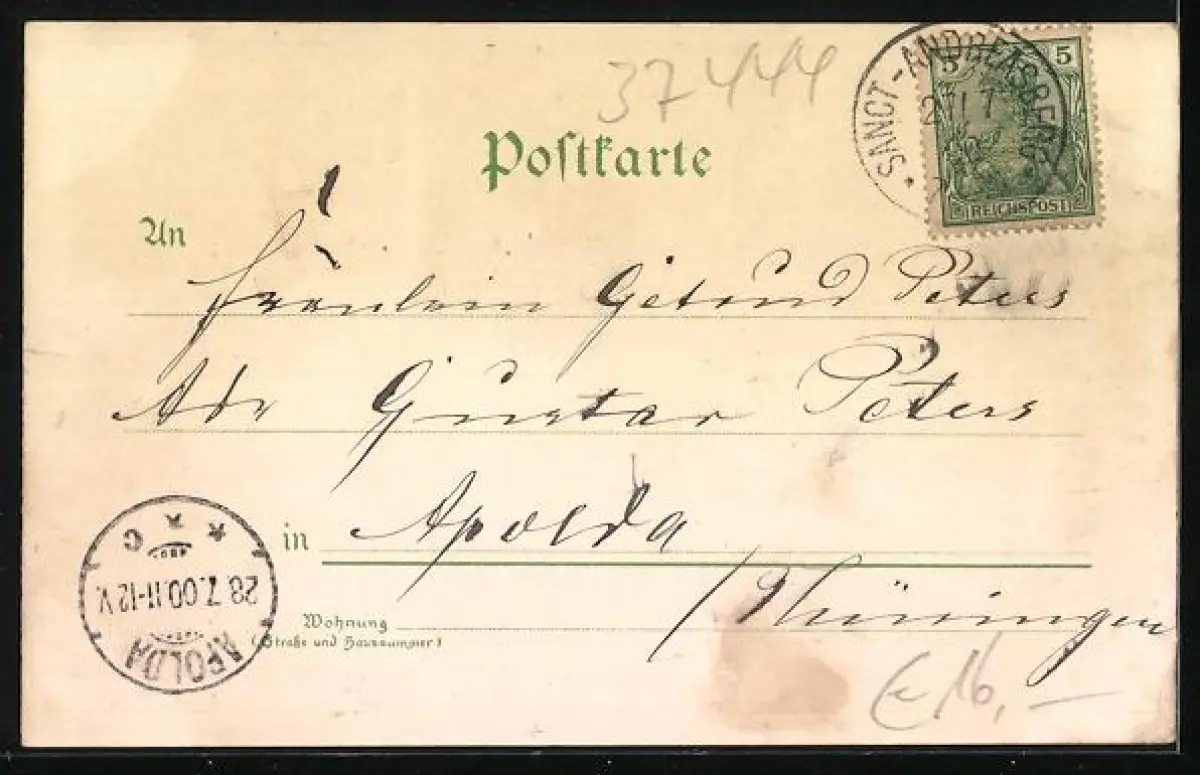 37444
Postkarte
SANCT-ANDREASBERG
5 5
REICHSPOST
An
Fräulein Getrud Peters
Adr Gustav Peters
in Apolda
/Thüringen
Wohnung
(Straße und Hausnummer)
APOLDA
28.7.00.11-12V.
C
€ 16,-